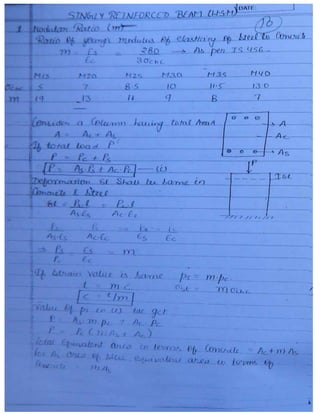 DATE
SINGLY REINFORCED BEAM (WSM)
(10)
1 Modular Ratio (m)
Ratio of young's modulus of elasticity of steel to Concrete
m = Es 280 → As per IS 456.
Ec 3σcbc
M15 M20 M25 M30 M35 M40
σcbc 5 7 8.5 10 11.5 13.0
m 19 13 11 9 8 7
Consider a Column having total Area A
A = As + Ac
If total load P
P = Ps + Pc
[P = As Ps + Ac Pc] — (i)
Deformation δl Shall be same in
Concrete & Steel
δl = Psl = Pcl
AsEs AcEc
Ps Pc Ps Pc
AsEs AcEc Es Ec
⇒ Ps Es = m
Pc Ec
If strain value is same ps = mpc
t = mc σst = mσcbc
[c = t/m]
Value of ps in (i) we get
P = As m pc + Ac Pc
P = Pc (mAs + Ac)
Total Equivalent area in terms of Concrete = Ac + mAs
for As area of steel equivalent area in terms of
Concrete = mAs
A
Ac
As
P
δl